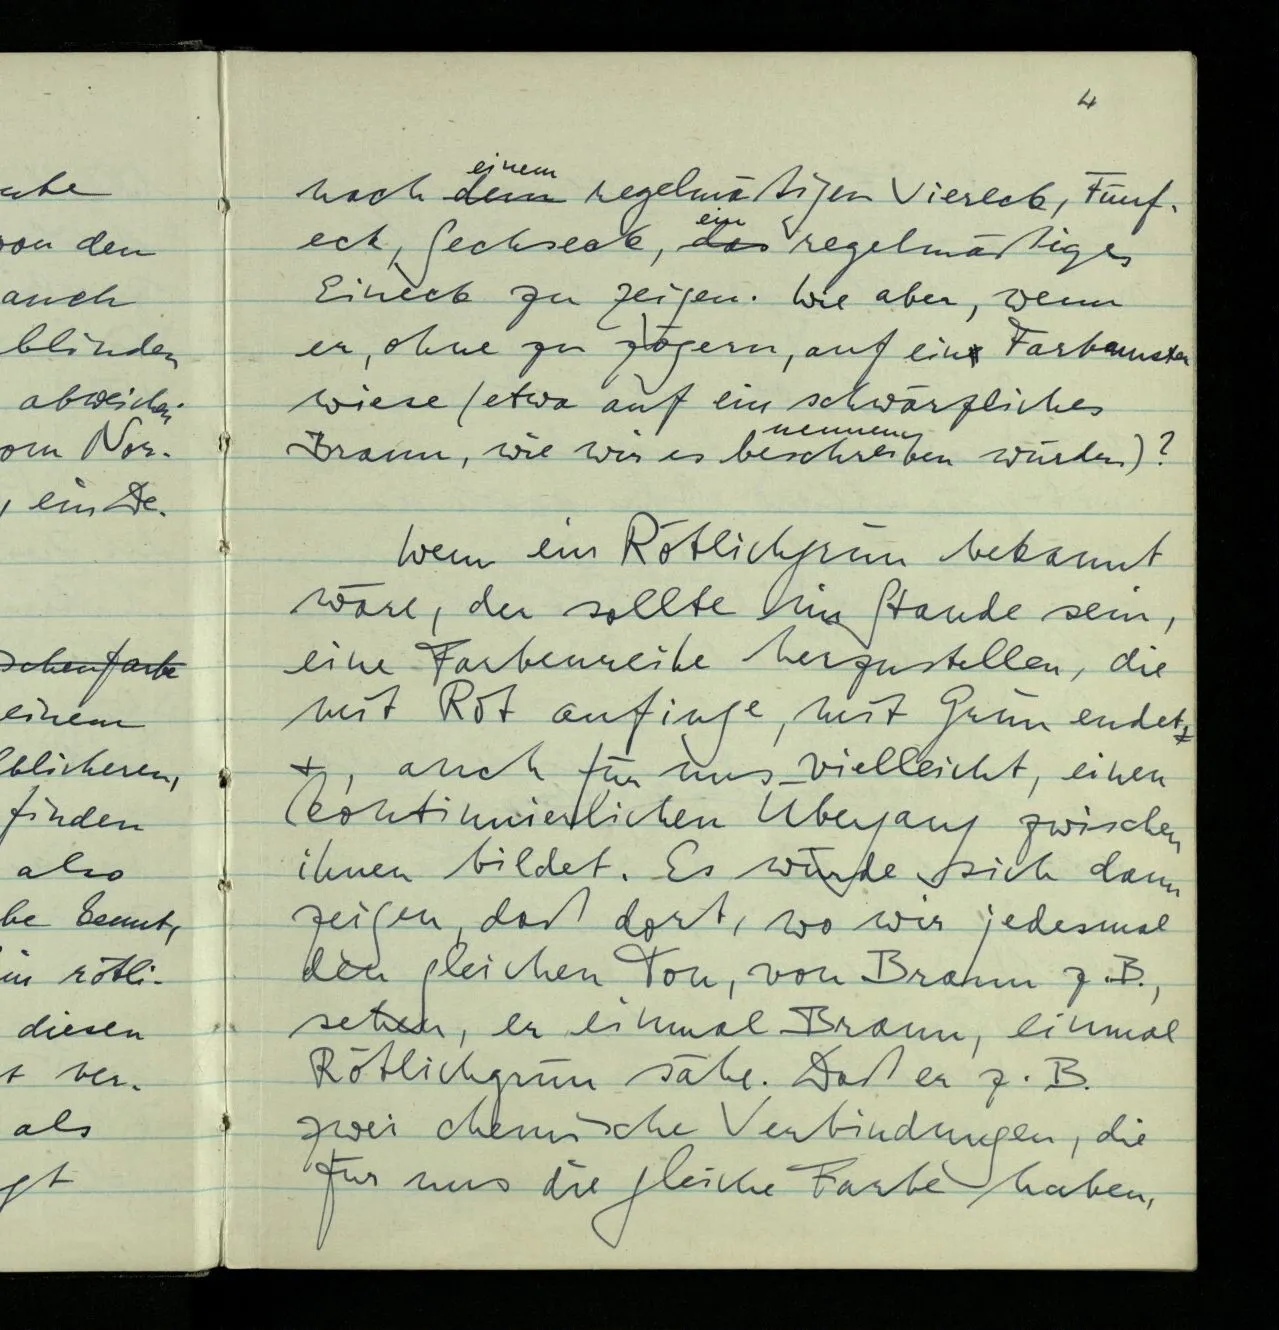 4
ube
von den
auch
blinden
abweichen-
vom Nor-
, ein De-
schenfarbe
einem
lblicheren,
finden
also
be kennt,
ein rötli-
diesen
t ver-
als
gt
einem
nach dem regelmäßigen Viereck, Fünf-
ein
eck, Sechseck, das regelmäßiges
Eineck zu zeigen. Wie aber, wenn
er, ohne zu zögern, auf ein Farbmuster
wiese (etwa auf ein schwärzliches
nennen
Braun, wie wir es beschreiben würden)?
Wem ein Rötlichgrün bekannt
wäre, der sollte im Stande sein,
eine Farbenreihe herzustellen, die
mit Rot anfinge, mit Grün endet
&, auch für uns vielleicht, einen
kontinuierlichen Übergang zwischen
ihnen bildet. Es würde sich dann
zeigen, daß dort, wo wir jedesmal
den gleichen Ton, von Braun z.B.,
sehen, er einmal Braun, einmal
Rötlichgrün sähe. Daß er z.B.
zwei chemische Verbindungen, die
für uns die gleiche Farbe haben,